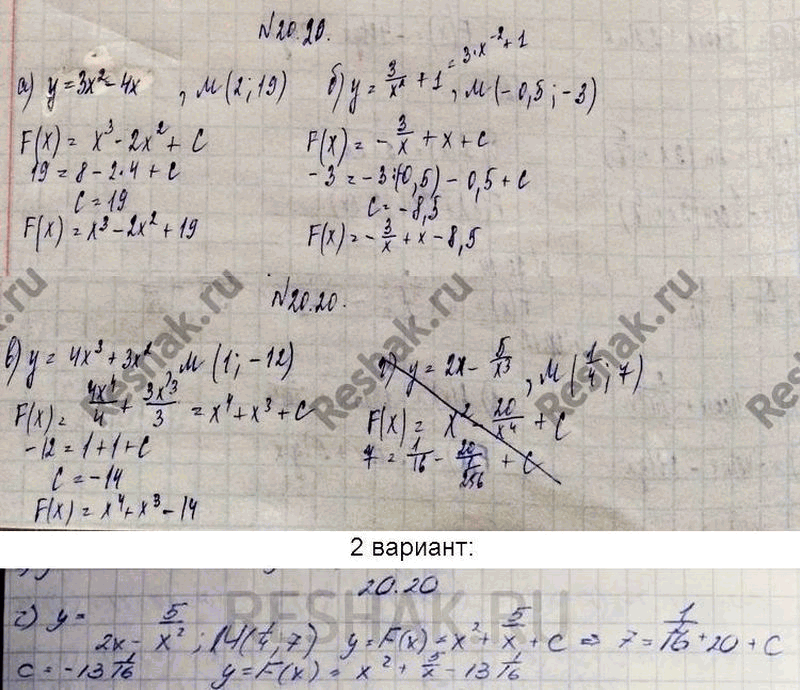 N20.20.
а) y = 3x² - 4x , M(2; 19)
F(x) = x³ - 2x² + C
19 = 8 - 2·4 + C
C = 19
F(x) = x³ - 2x² + 19
б) y = 3/x² + 1 = 3·x⁻² + 1 , M(-0,5; -3)
F(x) = - 3/x + x + C
-3 = -3:(-0,5) - 0,5 + C
C = -8,5
F(x) = - 3/x + x - 8,5
N20.20.
в) y = 4x³ + 3x² , M(1; -12)
F(x) = 4x⁴/4 + 3x³/3 = x⁴ + x³ + C
-12 = 1 + 1 + C
C = -14
F(x) = x⁴ + x³ - 14
г) y = 2x - 5/x³ , M(1/4; 7)
F(x) = x² - 20/x⁴ + C
7 = 1/16 - 20/(1/256) + C
Reshak.ru
Reshak.ru
Reshak.ru
2 вариант:
20.20
RESHAK.RU
г) y = 2x - 5/x² ; M(1/4, 7) y = F(x) = x² + 5/x + C ⇒ 7 = 1/16 + 20 + C
C = -13 1/16 y = F(x) = x² + 5/x - 13 1/16